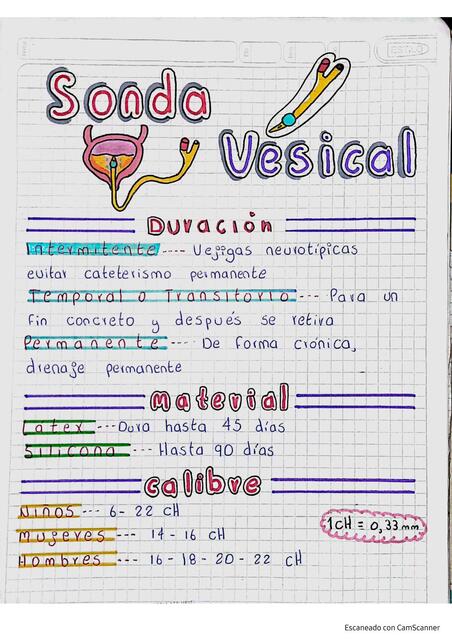 ESTILO
Sonda
Vesical
Duración
Intermitente ---- Vejigas neurotípicas
evitar cateterismo permanente
Temporal o Transitorio --- Para un
fin concreto y después se retira
Permanente ---- De forma crónica,
drenaje permanente
material
Latex --- Dura hasta 45 días
Silicona --- Hasta 90 días
calibre
Niños --- 6- 22 cH
Mujeres --- 14 - 16 cH
1cH = 0,33 mm
Hombres --- 16 - 18 - 20 - 22 cH
Escaneado con CamScanner